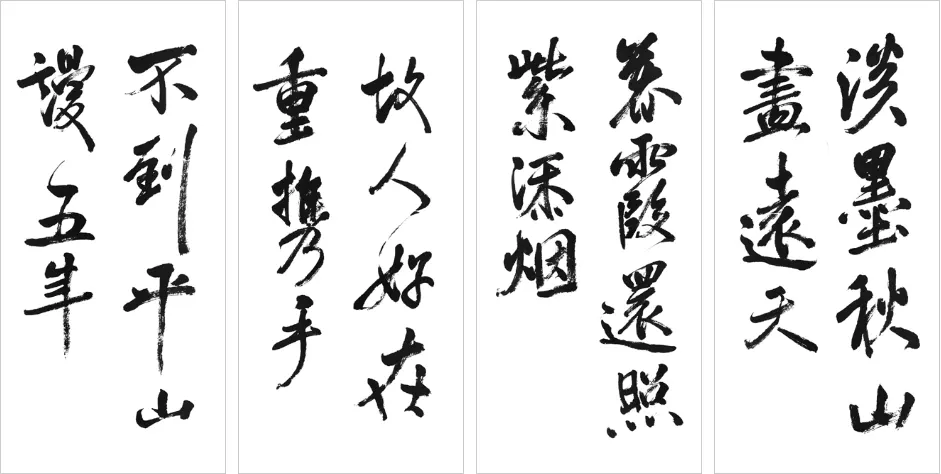 淡墨秋山
畫遠天
暮霞還照
紫添烟
故人好在
重携手
不到平山
謾五年